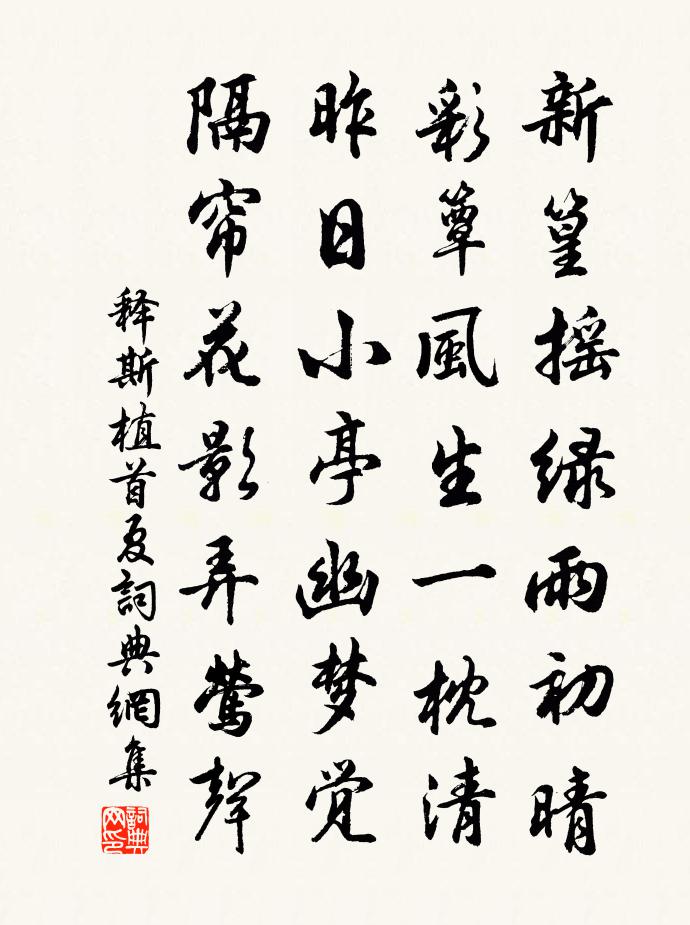 新篁摇绿雨初晴
彩簟風生一枕清
昨日小亭幽梦觉
隔帘花影弄莺聲
释斯植首夏詞典網集
詞典
网印